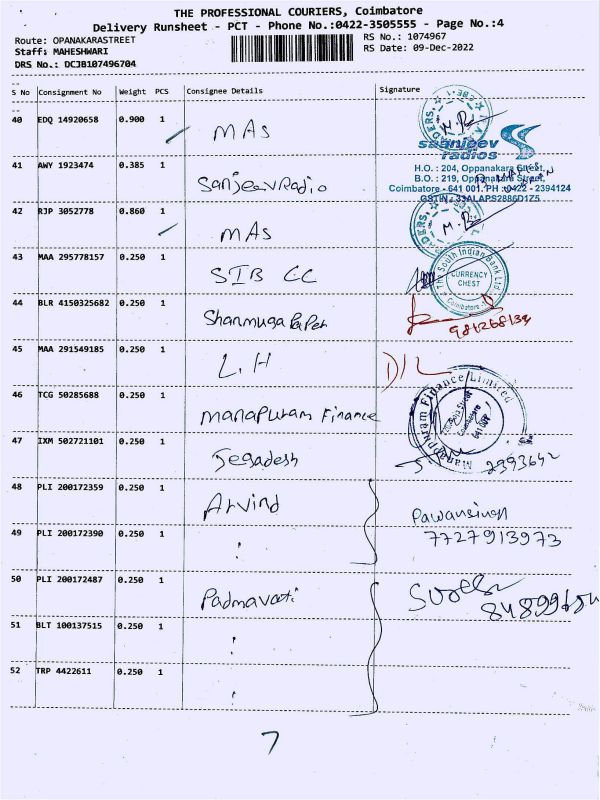 THE PROFESSIONAL COURIERS, Coimbatore
Delivery Runsheet - PCT - Phone No.:0422-3505555 - Page No.:4
Route: OPANAKARASTREET
RS No.: 1074967
Staff: MAHESHWARI
RS Date: 09-Dec-2022
DRS No.: DCJB107496704
S No Consignment No Weight PCS Consignee Details Signature
40 EDQ 14920658 0.900 1 MAS
saanjeev
radios
H.O.: 204, Oppanakara Street,
B.O.: 219, Oppanakara Street,
Coimbatore - 641 001. PH : 0422 - 2394124
GSTIN : 33ALAPS2886D1Z5
41 AWY 1923474 0.385 1 Sanjeev Radio
42 RJP 3052778 0.860 1 MAS
43 MAA 295778157 0.250 1 SIB CC
The South Indian Bank Ltd.
CURRENCY
CHEST
Coimbatore
44 BLR 4150325682 0.250 1 Shanmuga Paper
45 MAA 291549185 0.250 1 L.H D/L
46 TCG 50285688 0.250 1 Manapuram Finance
Manappuram Finance Limited
47 IXM 502721101 0.250 1 Jegadesh 2393642
48 PLI 200172359 0.250 1 Arvind Pawansingh
49 PLI 200172390 0.250 1 7727913973
50 PLI 200172487 0.250 1 Padmavati
51 BLT 100137515 0.250 1
52 TRP 4422611 0.250 1
7